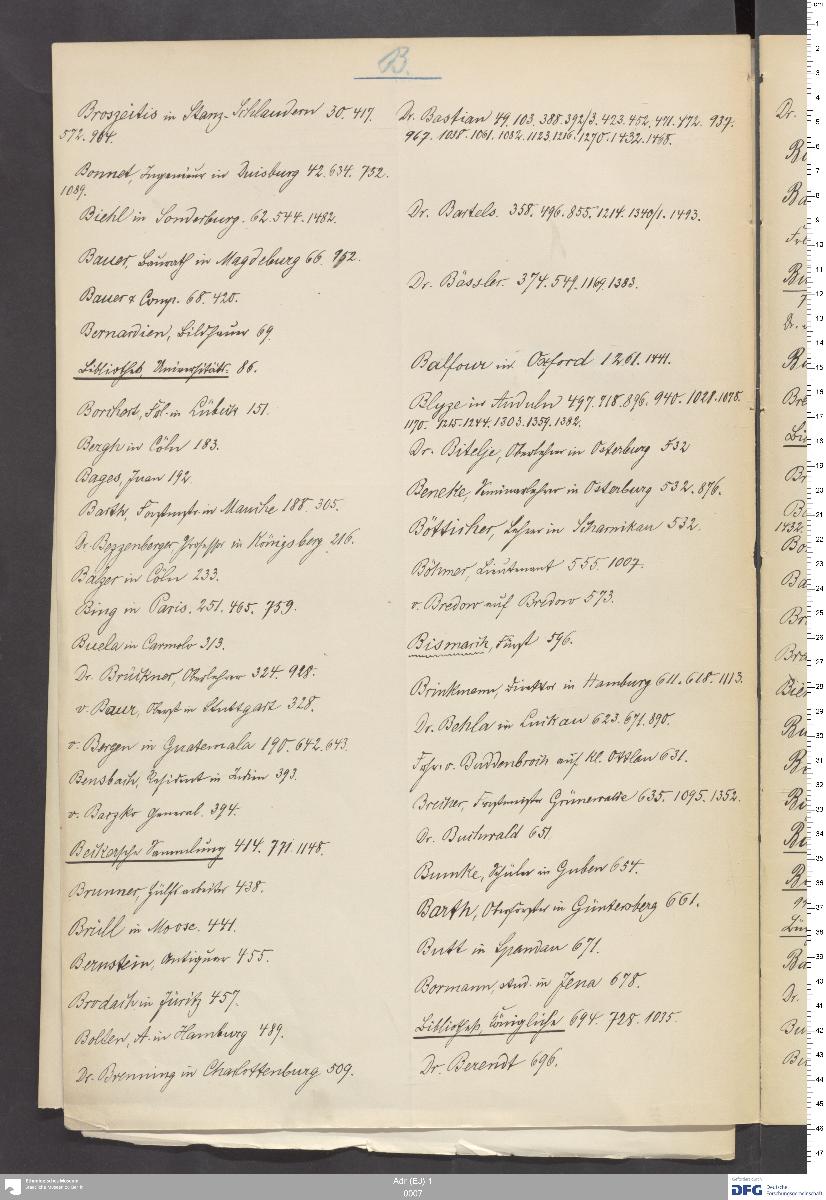 B.
Broszeitis in Stanz-Schlandern 30. 417.
572. 964.
Bonnet, Ingenieur in Duisburg 42. 634. 752.
1039.
Biehl in Sonderburg. 62. 544. 1482.
Bauer, Baurath in Magdeburg 66. 752.
Bauer & Comp. 68. 420.
Bernardien, Bildhauer 69.
Bibliothek, Universitäts. 86.
Borchert, in Lübeck 151.
Bergh in Cöln 183.
Bages, Juan 192.
Barth, Forstmstr. in 188. 305.
Dr. Bezzenberger, Professor in Königsberg 216.
Balzer in Cöln 233.
Bing in Paris. 251. 465. 759.
Buela in Carmelo 313.
Dr. Brückner, Oberlehrer 324. 928.
v. Baur, Oberst in Stuttgart 328.
v. Bergen in Guatemala 190. 642. 643.
Bensbach, Resident in 393.
v. Barzko General. 394.
Beckersche Sammlung 414. 771. 1148.
Brunner, Hülfsarbeiter 438.
Brüll in Moose. 441.
Bernstein, Antiquar 455.
Brodach in Jüritz 457.
Bolten, A. in Hamburg 489.
Dr. Brenning in Charlottenburg 509.
Dr. Bastian 49. 103. 388. 392/3. 423. 452. 471. 472. 937.
967. 1038. 1061. 1082. 1123. 1216. 1270. 1432. 1468.
Dr. Bartels. 358. 496. 855. 1214. 1340/1. 1493.
Dr. Bässler. 374. 549. 1169. 1383.
Balfour in Oxford 1261. 1441.
Blyze in Anduln 497. 718. 896. 940. 1028. 1078.
1170. 1215. 1244. 1303. 1359. 1382.
Dr. Bitelje, Oberlehrer in Osterburg 532
Beneke, Seminarlehrer in Osterburg 532. 876.
Bötticher, Lehrer in Scharnikau 532.
Böhmer, Lieutenant 555. 1007.
v. Bredow auf Bredow 573.
Bismarck, Fürst 596.
Brinkmann, Direktor in Hamburg 611. 618. 1113.
Dr. Behla in Luckau 623. 671. 890.
Frhr. v. Buddenbrock auf Kl. Ottlau 631.
Brecher, Forstmeister Grünewalde 635. 1095. 1352.
Dr. Buchwald 651
Bumke, Schüler in Guben 654.
Barth, Oberförster in Güntersberg 661.
Butt in Spandau 671.
Bormann, stud. in Jena 678.
Bibliothek, Königliche 694. 728. 1035.
Dr. Berendt 696.
Ethnologisches Museum
Staatliche Museen zu Berlin
Adr (EJ) 1
0007
gefördert von
DFG Deutsche
Forschungsgemeinschaft